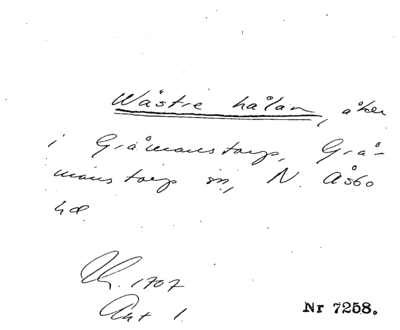 Wästre hålan, åker
i Gråmanstorp, Grå-
manstorp sn, N. Åsbo
hd.
Lh. 1707
Akt 1.
Nr 7258.